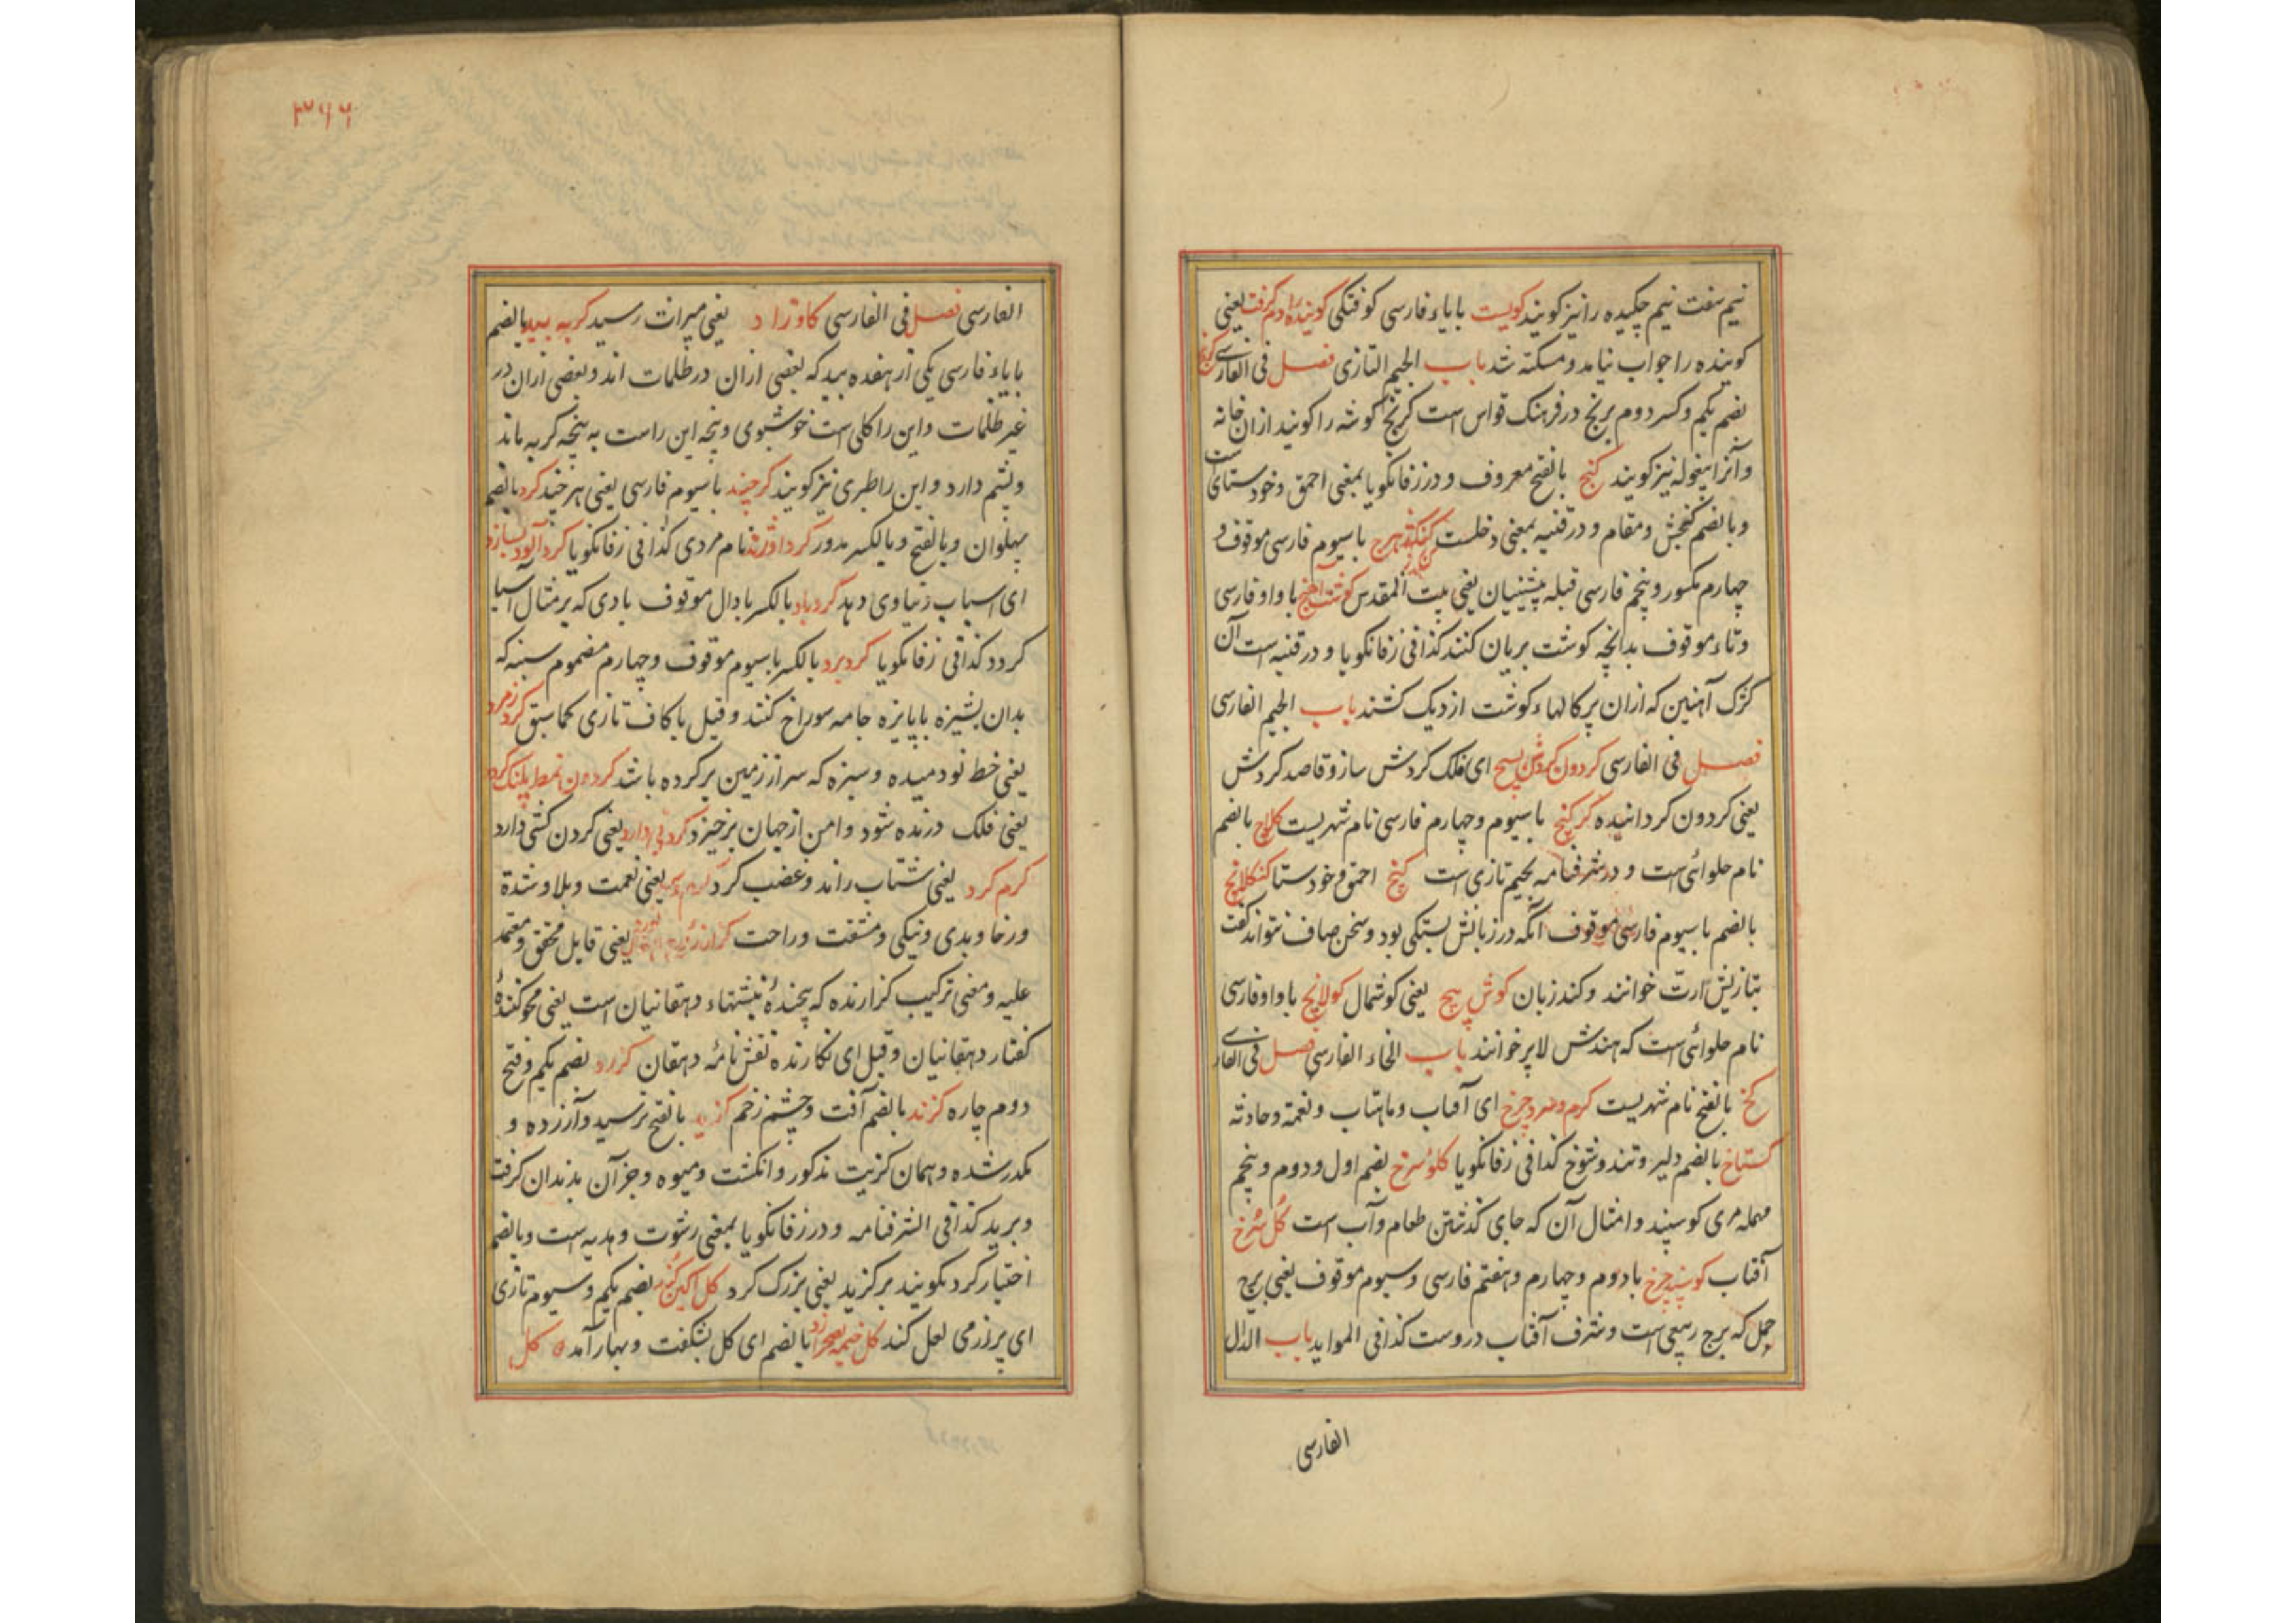 نیم سفت نیم چکیده را نیز کویند کویست با یاء فارسی کوفتکی کوینده را دم کرفت یعنی
کوینده را جواب نیامد و مسکته شد باب الجیم التازی فصل فی الفارسی کرنج
بضم یکم و کسر دوم برنج در فرهنک قواس است کرنج کوشه را کویند از ان خانه
و آنرا بیغوله نیز کویند کنج بالفتح معروف و در زفانکویا بمعنی احمق و خودستای است
و بالضم کنجش و مقام و در قنیه بمعنی دخلست با سیوم فارسی موقوف و
چهارم مکسور و پنجم فارسی قبله پیشینیان یعنی بیت المقدس کوشت آهنج با واو فارسی
و تاء موقوف بدانچه کوشت بریان کنند کذا فی زفانکویا و در قنیه است آن
کژک آهنین که از ان پرکالهاء کوشت از دیک کشند باب الجیم الفارسی
فصل فی الفارسی کردون کردش بسیج ای فلک کردش ساز و قاصد کردش
یعنی کردون کرداننده کرکنج با سیوم و چهارم فارسی نام شهریست کلاج بالضم
نام حلوائی است و در شرفنامه بجیم تازی است کنج احمق و خودستا کنکلاج
بالضم با سیوم فارسی موقوف آنکه در زبانش بستکی بود و سخن صاف نتواند کفت
بتازیش ارتّ خوانند و کند زبان کوش پیچ یعنی کوشمال کولانج با واو فارسی
نام حلوائی است که هندش لابر خوانند باب الخاء الفارسی فصل فی الفارسی
کخ بالفتح نام شهریست کرم و سرد چرخ ای آفتاب و ماهتاب و نعمة و حادثه
کستاخ بالضم دلیر و تند و شوخ کذا فی زفانکویا کلو سرخ بضم اول و دوم و پنجم
مهمله مری کوسپند و امثال آن که جای کذشتن طعام و آب است کل سرخ
آفتاب کوسپند چرخ با دوم و چهارم و هفتم فارسی و سیوم موقوف یعنی برج
حمل که برج ربیعی است و شرف آفتاب دروست کذا فی الموايد باب الدال
الفارسی
۳۶۶
الفارسی فصل فی الفارسی کاو زاد یعنی میراث رسید کربه بید بالضم
با یاء فارسی یکی از هفده بید که بعضی ازان در ظلمات اند و بعضی ازان در
غیر ظلمات و این را کلی است خوشبوی و پنجه این راست به پنجه کربه ماند
و پشم دارد و این را طبری نیز کویند کرچند با سیوم فارسی یعنی هر چند کرد بالضم
پهلوان و بالفتح و بالکسر مدور نام مردی کذا فی زفانکویا کرد آلود سازد
ای اسباب دنیاوی دهد کردباد بالکسر با دال موقوف بادی که بر مثال آسیا
کردد کذا فی زفانکویا کردبرد بالکسر با سیوم موقوف و چهارم مضموم سنبه که
بدان پشیزه با پایزه جامه سوراخ کنند و قیل با کاف تازی کما سبق کرد زمرد
یعنی خط نو دمیده و سبزه که سر از زمین بر کرده باشد کردون نمط پلنک کردد
یعنی فلک درنده شود و امن از جهان برخیزد یعنی کردن کشی دارد
کرم کرد یعنی شتاب راند و غضب کرد یعنی نعمت و بلا و شدة
و رخا و بدی و نیکی و مشقت و راحت یعنی قابل محقق و معتمد
علیه و معنی ترکیب کزارنده که پیچندهٔ نبشتهاء دهقانیان است یعنی محو کنندهٔ
کفتار دهقانیان و قیل ای نکارنده نقش نامهٔ دهقان کزرد بضم یکم و فتح
دوم چاره کزند بالضم آفت و چشم زخم کزید بالفتح ترسید و آزرده و
مکدر شده و همان کزیت مذکور و انکشت و میوه و جز آن بدندان کرفت
و برید کذا فی الشرفنامه و در زفانکویا بمعنی رشوت و هدیه است و بالضم
اختیار کرد بکویند برکزید یعنی بزرک کرد بضم یکم و سیوم تازی
ای پرزر می لعل کند کل خیمه بصحرا زد بالضم ای کل بشکفت و بهار آمد کل